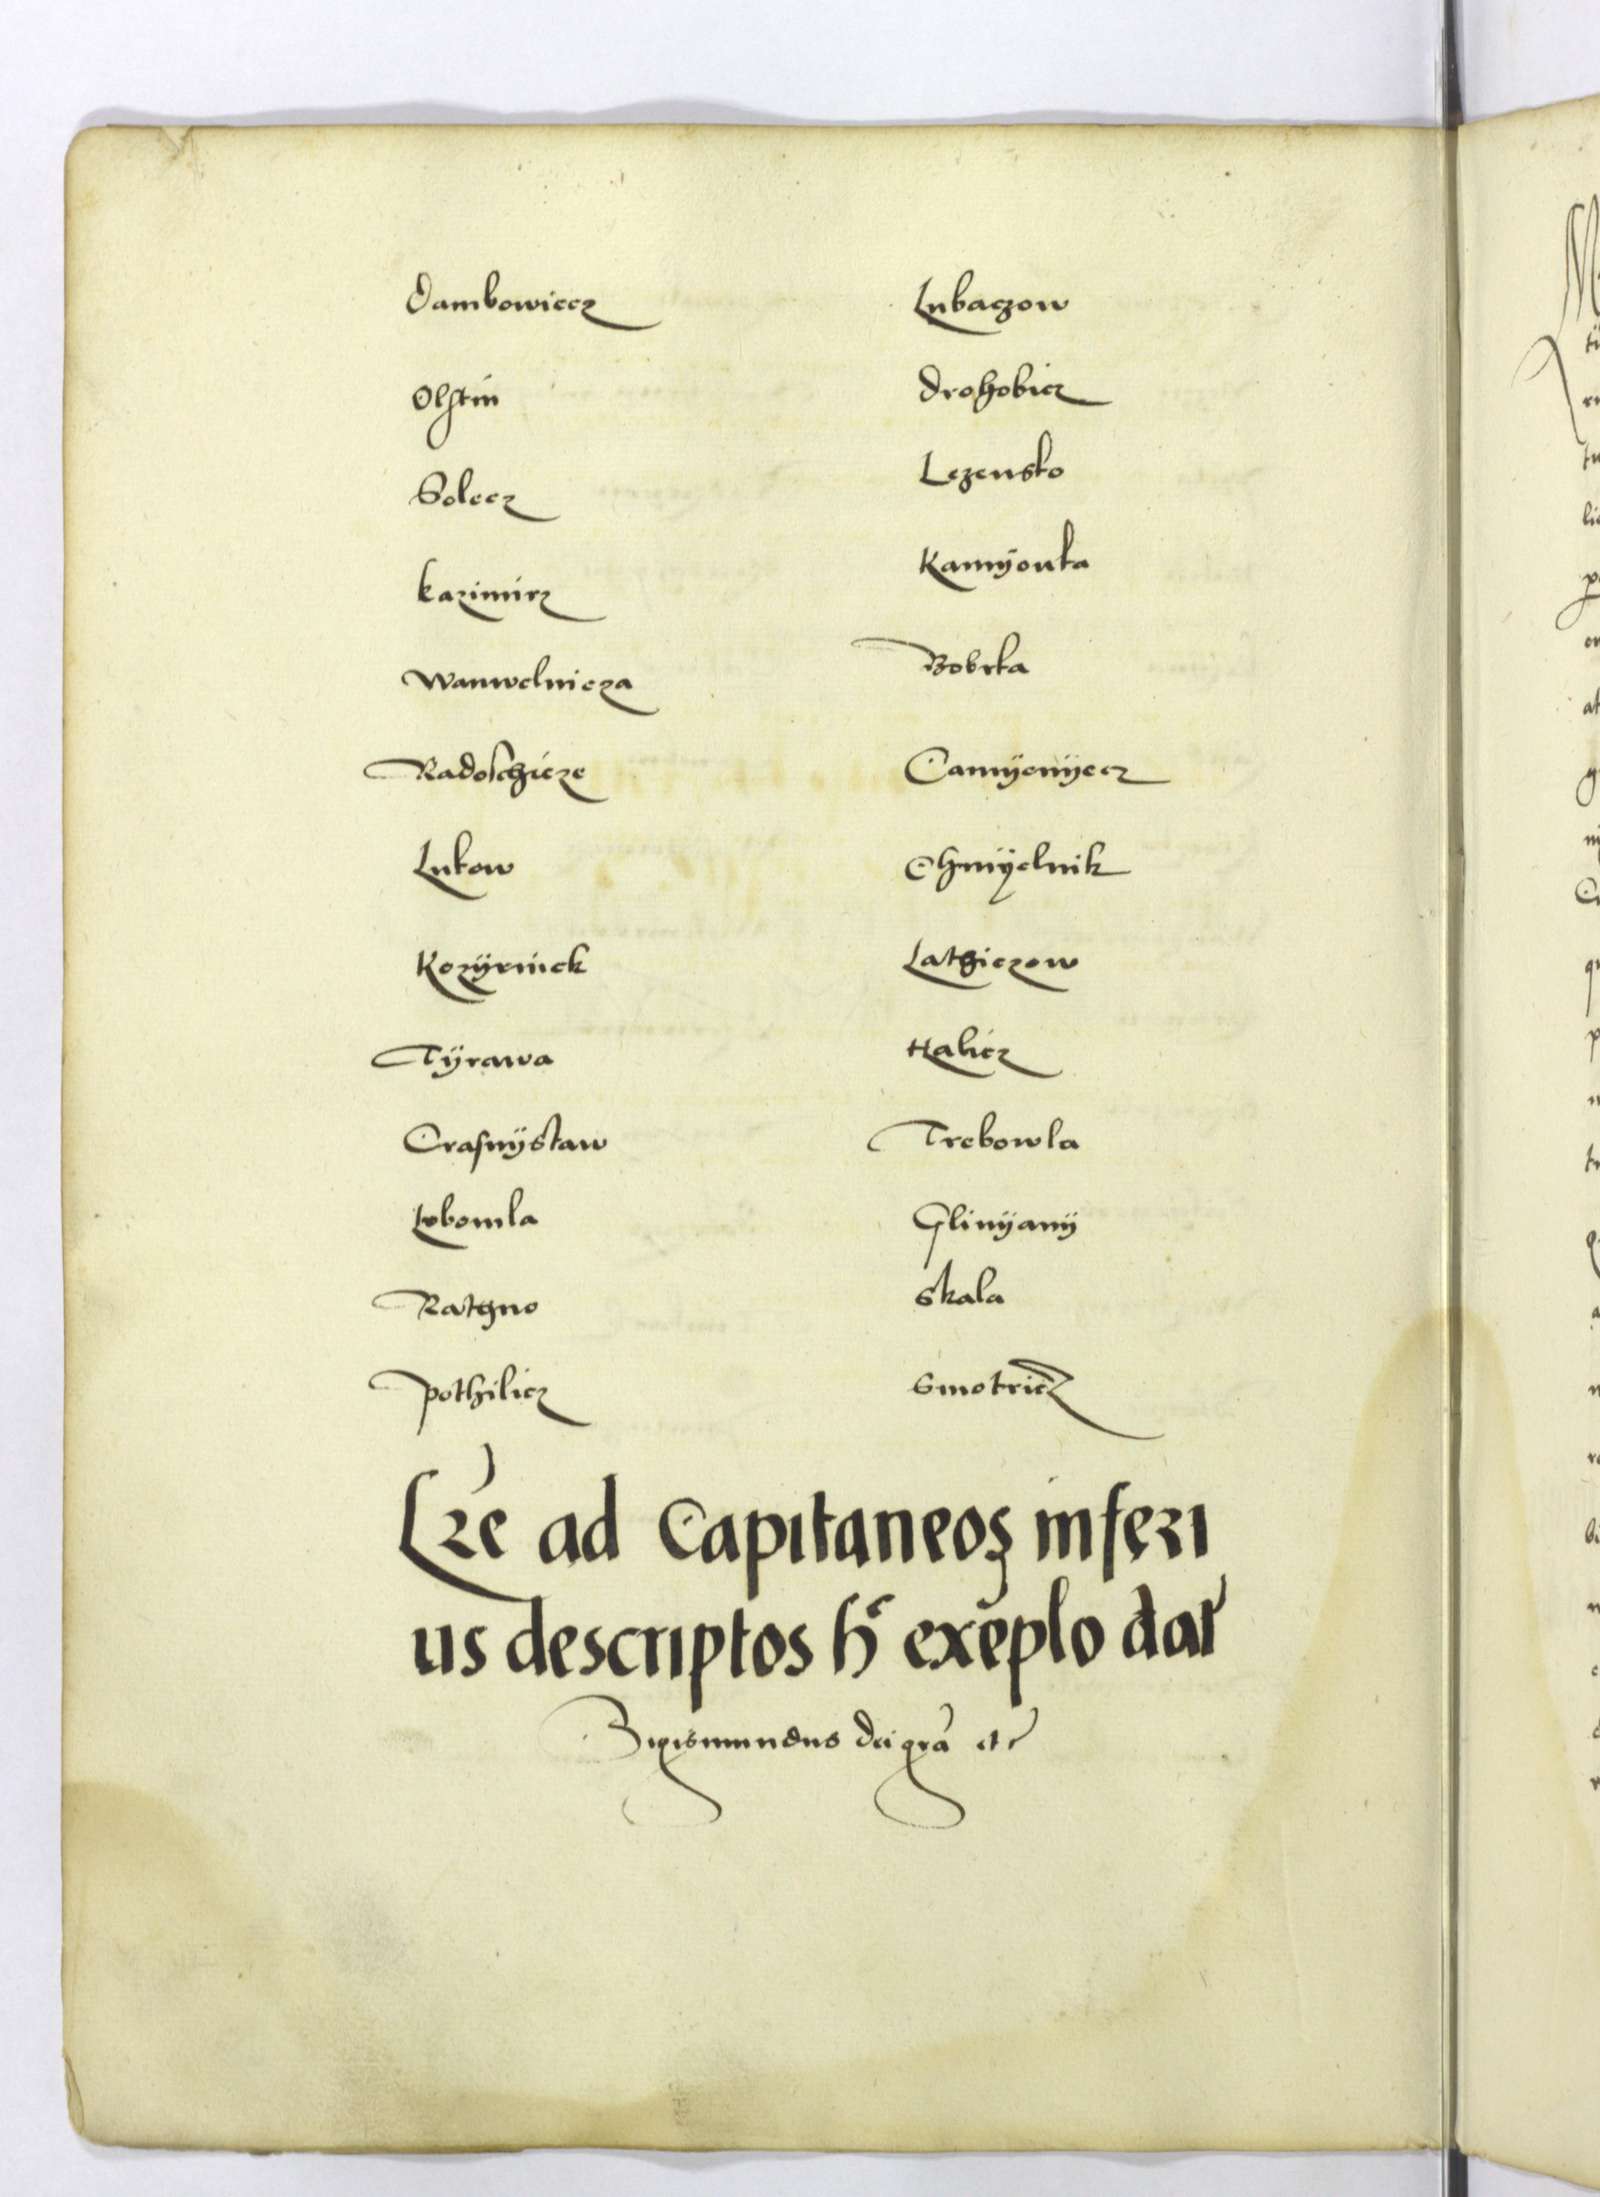 Dambowiecz
Olstin
Solecz
kazimirz
Wanwelnicza
Radoschicze
Lukow
Kozÿenick
Tÿrawa
Crasnÿstaw
Lubomla
Rathno
Pothilicz
Lubaczow
Drohobicz
Lezensko
Kamÿonka
Bobrka
Camÿenÿecz
Chmÿelnik
Lathiczow
Halicz
Trebowla
Glinÿanÿ
Skala
Smotricz
Lr̃e ad Capitaneos inferi
us descriptos h° exẽplo dat̃
Sigismundus dei grã etc̃